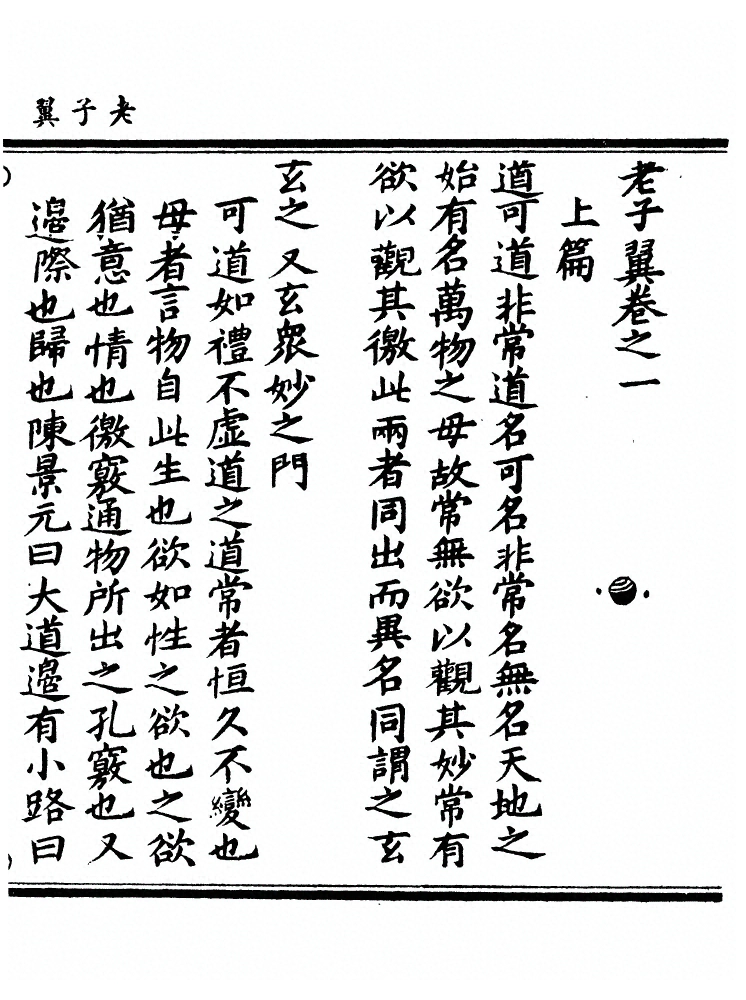 老子翼
老子翼卷之一
上篇
道可道非常道名可名非常名無名天地之
始有名萬物之母故常無欲以觀其妙常有
欲以觀其徼此兩者同出而異名同謂之玄
玄之又玄衆妙之門
可道如禮不虛道之道常者恒久不變也
母者言物自此生也欲如性之欲也之欲
猶意也情也徼竅通物所出之孔竅也又
邊際也歸也陳景元曰大道邊有小路曰